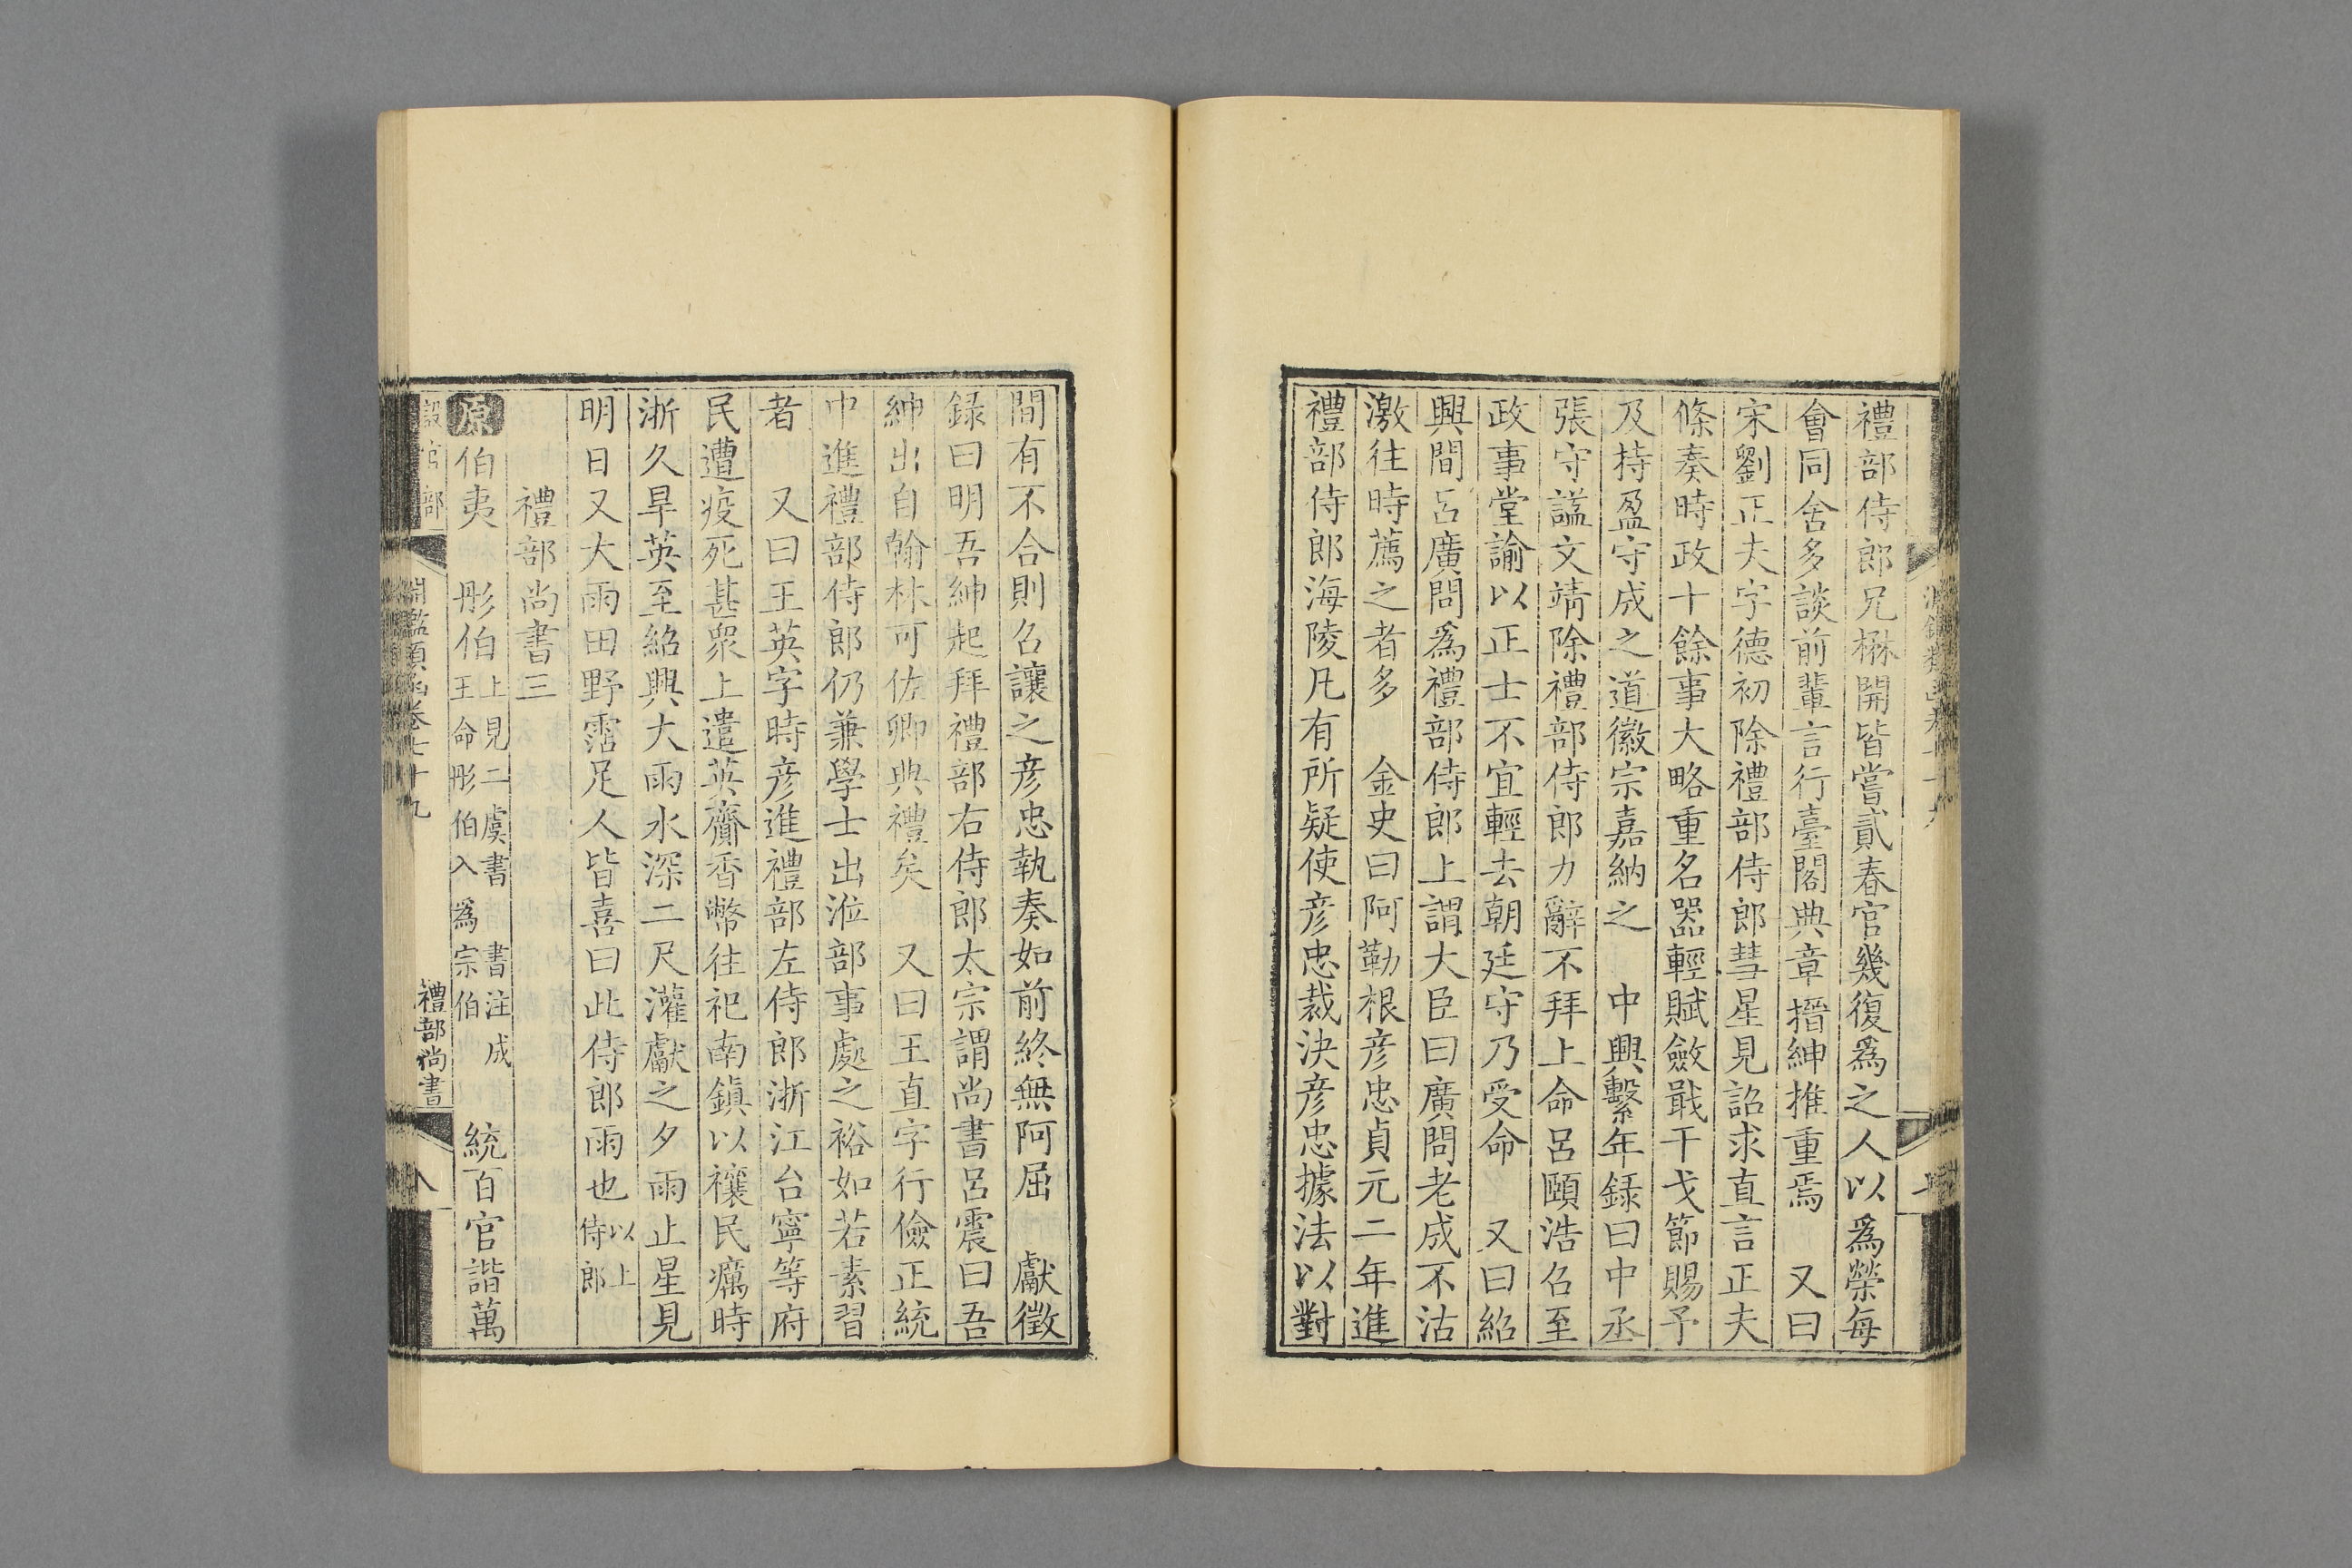 禮部侍郎兄楙開皆嘗貳春官幾復爲之人以爲榮每
會同舍多談前輩言行臺閣典章搢紳推重焉　又曰
宋劉正夫字德初除禮部侍郎彗星見詔求直言正夫
條奏時政十餘事大略重名器輕賦斂戢干戈節賜予
及持盈守成之道徽宗嘉納之　中興繫年録曰中丞
張守諡文靖除禮部侍郎力辭不拜上命呂頤浩召至
政事堂諭以正士不宜輕去朝廷守乃受命　又曰紹
興間召廣問爲禮部侍郎上謂大臣曰廣問老成不沽
激往時薦之者多　金史曰阿勒根彦忠貞元二年進
禮部侍郎海陵凡有所疑使彦忠裁決彦忠據法以對
間有不合則召讓之彦忠執奏如前終無阿屈　獻徵
録曰明吾紳起拜禮部右侍郎太宗謂尚書呂震曰吾
紳出自翰林可佐卿典禮矣　又曰王直字行儉正統
中進禮部侍郎仍兼學士出涖部事處之裕如若素習
者　又曰王英字時彦進禮部左侍郎浙江台寧等府
民遭疫死甚衆上遣英齎香幣往祀南鎮以禳民癘時
浙久旱英至紹興大雨水深二尺灌獻之夕雨止星見
明日又大雨田野霑足人皆喜曰此侍郎雨也以上侍郎
禮部尚書三
原伯夷　彤伯上見二虞書　書注成王命彤伯入爲宗伯　統百官諧萬
設官部　淵鑑類函卷七十九　禮部尚書　八